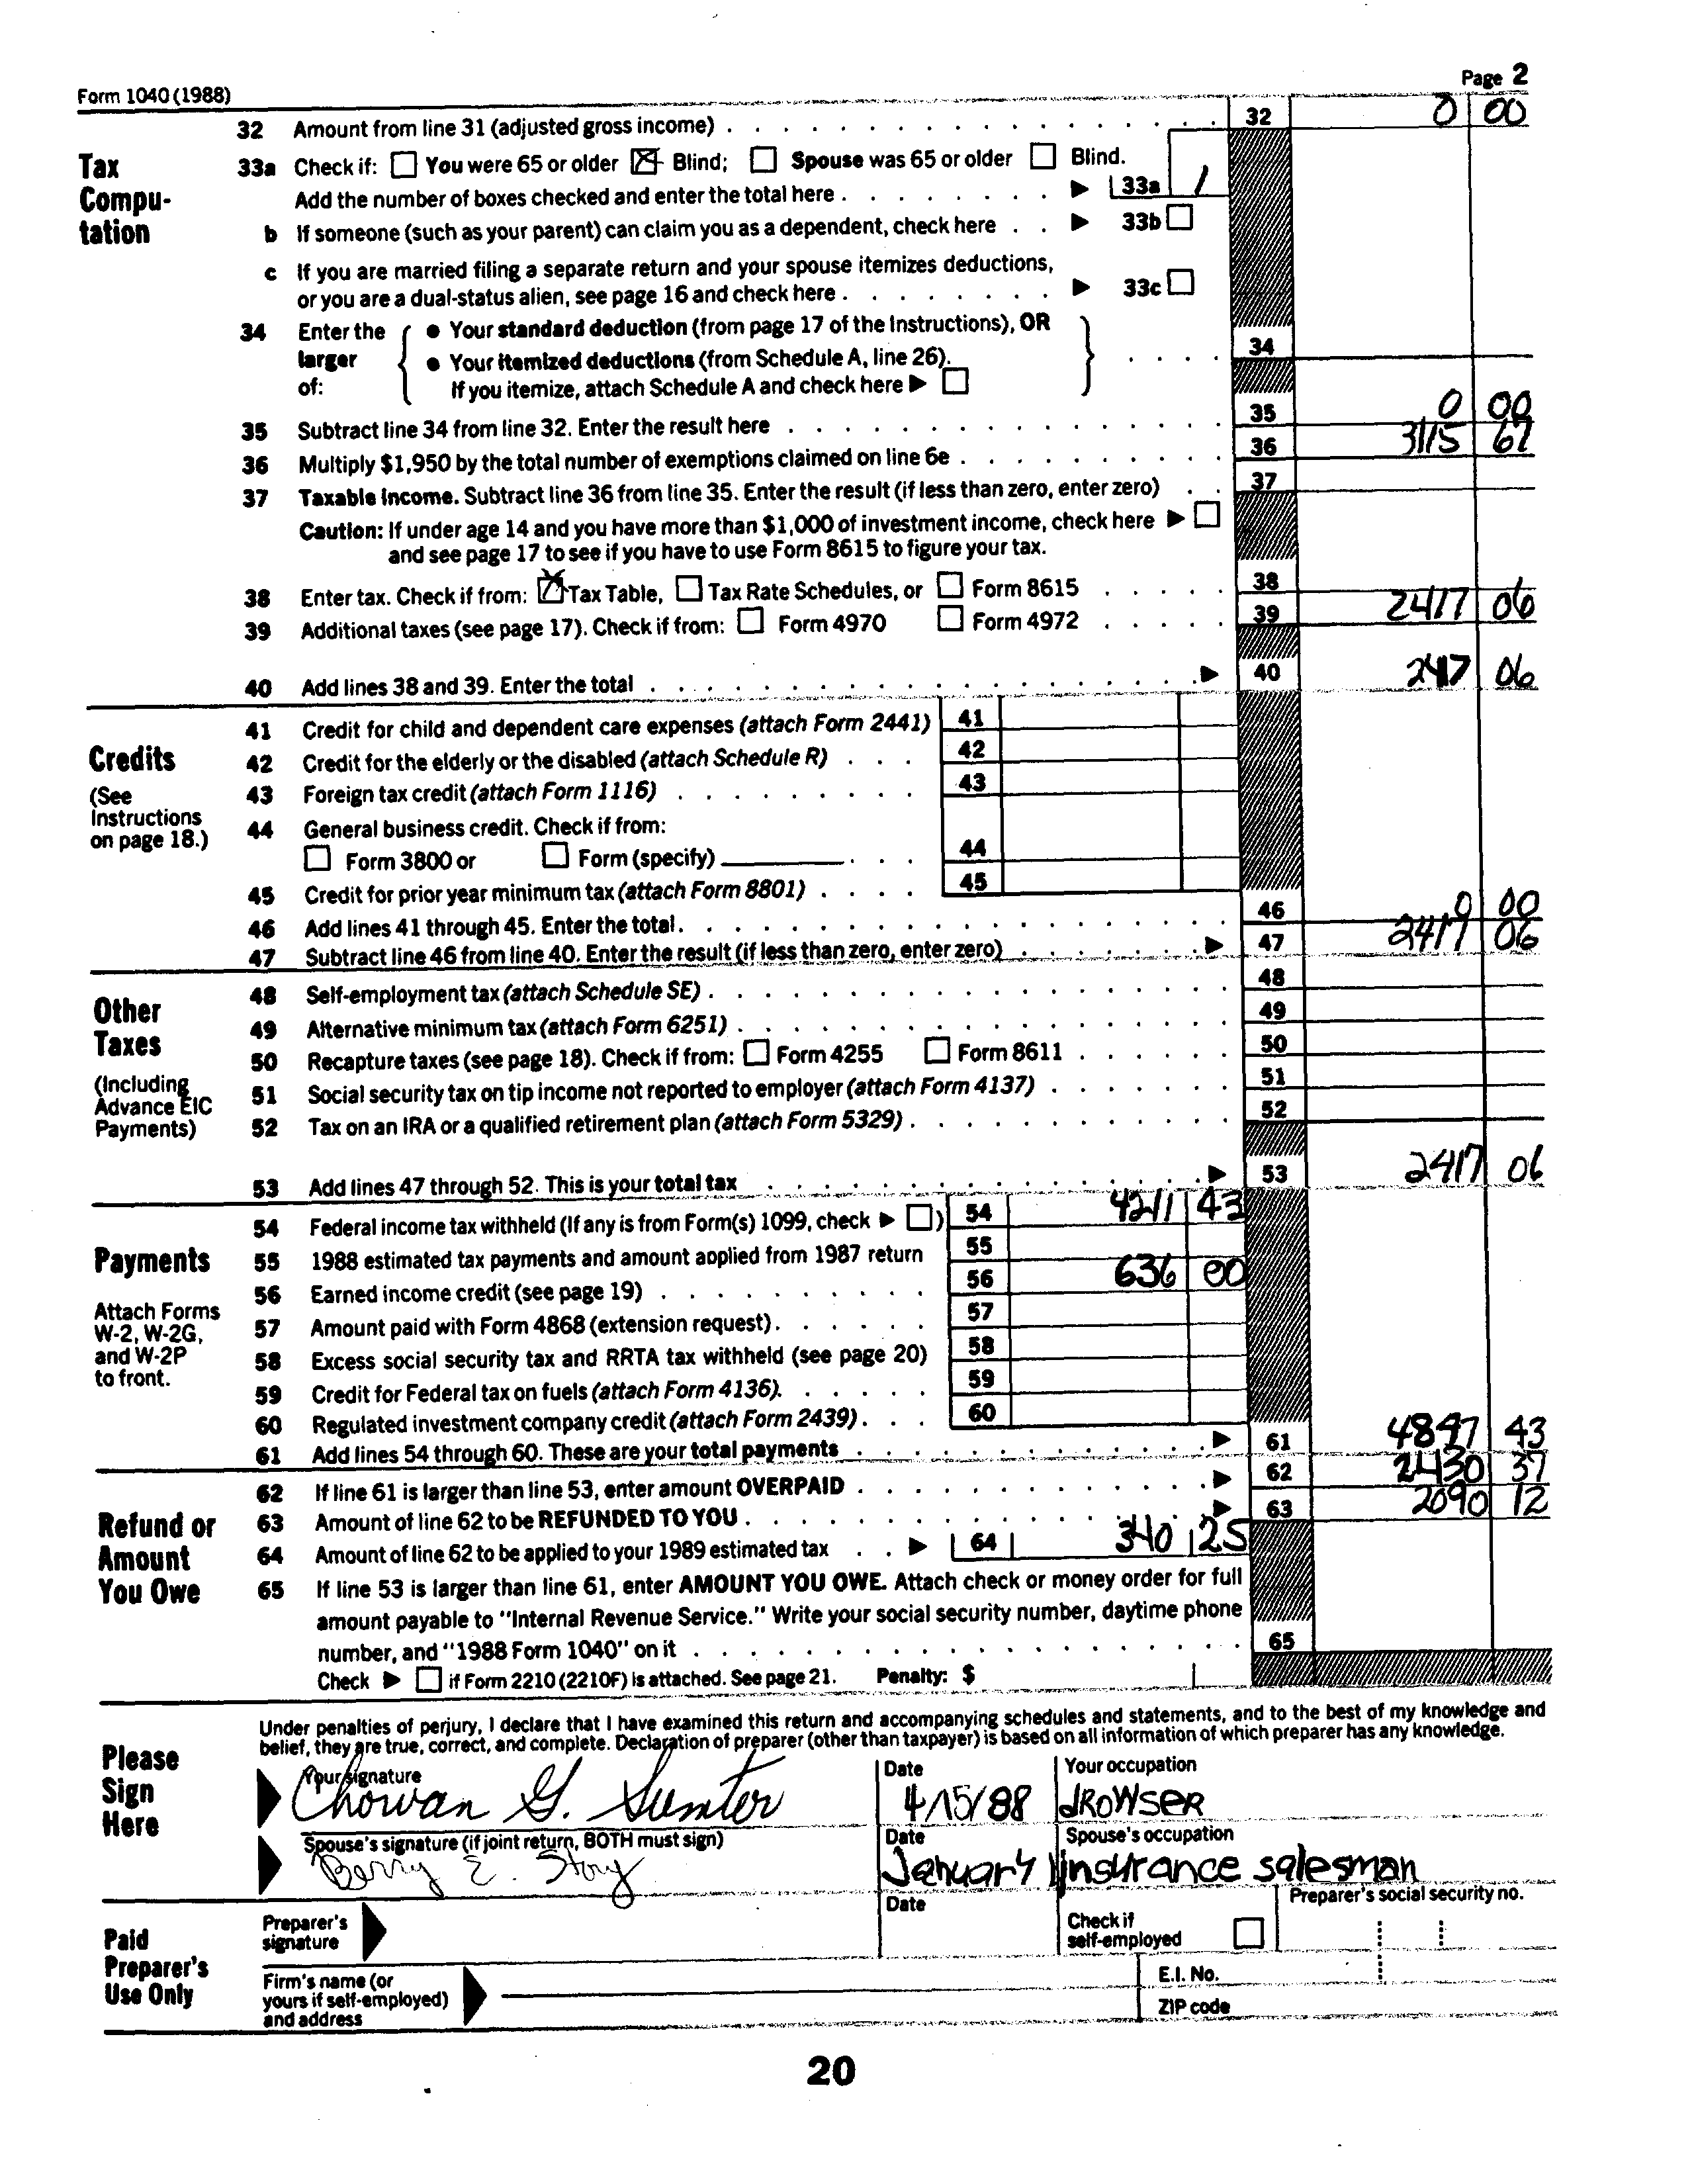 Form 1040 (1988) Page 2
32 Amount from line 31 (adjusted gross income) 32 0 00
Tax Compu-tation
33a Check if: You were 65 or older Blind; Spouse was 65 or older Blind.
Add the number of boxes checked and enter the total here 33a 1
b If someone (such as your parent) can claim you as a dependent, check here 33b
c If you are married filing a separate return and your spouse itemizes deductions,
or you are a dual-status alien, see page 16 and check here 33c
34 Enter the larger of: • Your standard deduction (from page 17 of the Instructions), OR
• Your itemized deductions (from Schedule A, line 26).
If you itemize, attach Schedule A and check here 34
35 Subtract line 34 from line 32. Enter the result here 35 0 00
36 Multiply $1,950 by the total number of exemptions claimed on line 6e 36 3115 67
37 Taxable income. Subtract line 36 from line 35. Enter the result (if less than zero, enter zero) 37
Caution: If under age 14 and you have more than $1,000 of investment income, check here
and see page 17 to see if you have to use Form 8615 to figure your tax.
38 Enter tax. Check if from: Tax Table, Tax Rate Schedules, or Form 8615 38
39 Additional taxes (see page 17). Check if from: Form 4970 Form 4972 39 2417 06
40 Add lines 38 and 39. Enter the total 40 2417 06
Credits
(See Instructions on page 18.)
41 Credit for child and dependent care expenses (attach Form 2441) 41
42 Credit for the elderly or the disabled (attach Schedule R) 42
43 Foreign tax credit (attach Form 1116) 43
44 General business credit. Check if from:
Form 3800 or Form (specify) 44
45 Credit for prior year minimum tax (attach Form 8801) 45
46 Add lines 41 through 45. Enter the total 46 0 00
47 Subtract line 46 from line 40. Enter the result (if less than zero, enter zero) 47 2417 06
Other Taxes
(Including Advance EIC Payments)
48 Self-employment tax (attach Schedule SE) 48
49 Alternative minimum tax (attach Form 6251) 49
50 Recapture taxes (see page 18). Check if from: Form 4255 Form 8611 50
51 Social security tax on tip income not reported to employer (attach Form 4137) 51
52 Tax on an IRA or a qualified retirement plan (attach Form 5329) 52
53 Add lines 47 through 52. This is your total tax 53 2417 06
Payments
Attach Forms W-2, W-2G, and W-2P to front.
54 Federal income tax withheld (If any is from Form(s) 1099, check ) 54 4211 43
55 1988 estimated tax payments and amount applied from 1987 return 55
56 Earned income credit (see page 19) 56 636 00
57 Amount paid with Form 4868 (extension request) 57
58 Excess social security tax and RRTA tax withheld (see page 20) 58
59 Credit for Federal tax on fuels (attach Form 4136) 59
60 Regulated investment company credit (attach Form 2439) 60
61 Add lines 54 through 60. These are your total payments 61 4847 43
Refund or Amount You Owe
62 If line 61 is larger than line 53, enter amount OVERPAID 62 2430 37
63 Amount of line 62 to be REFUNDED TO YOU 63 2090 12
64 Amount of line 62 to be applied to your 1989 estimated tax 64 340 25
65 If line 53 is larger than line 61, enter AMOUNT YOU OWE. Attach check or money order for full
amount payable to "Internal Revenue Service." Write your social security number, daytime phone
number, and "1988 Form 1040" on it 65
Check if Form 2210 (2210F) is attached. See page 21. Penalty: $
Please Sign Here
Under penalties of perjury, I declare that I have examined this return and accompanying schedules and statements, and to the best of my knowledge and
belief, they are true, correct, and complete. Declaration of preparer (other than taxpayer) is based on all information of which preparer has any knowledge.
Your signature Date Your occupation
Chowan G. Sumter 4/15/88 dROWSER
Spouse's signature (if joint return, BOTH must sign) Date Spouse's occupation
Berry E. Story January insurance salesman
Paid Preparer's Use Only
Preparer's signature Date Check if self-employed Preparer's social security no.
Firm's name (or yours if self-employed) and address E.I. No.
ZIP code
20